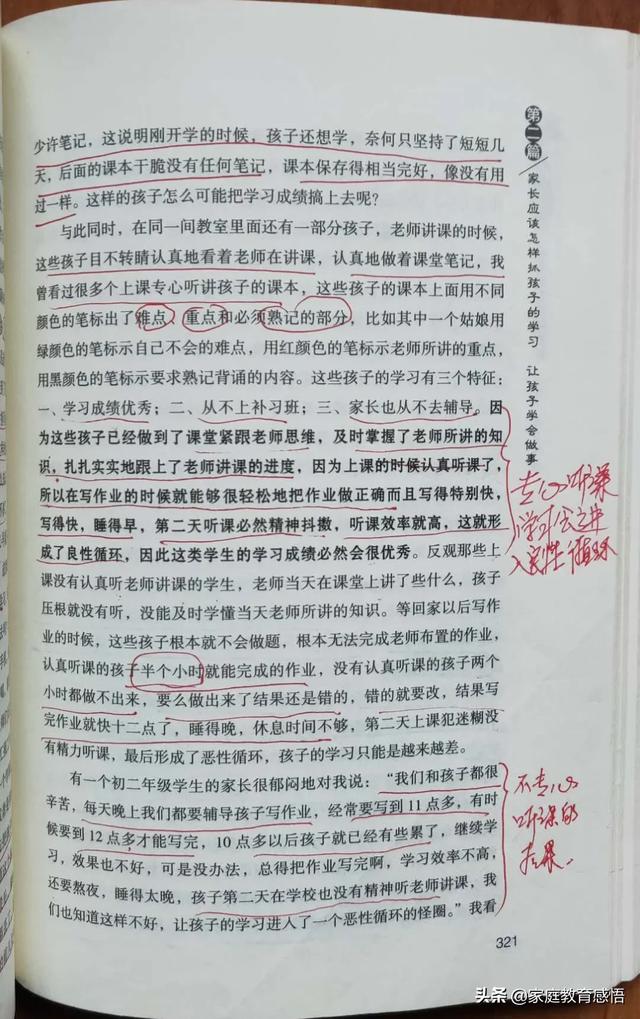 少许笔记，这说明刚开学的时候，孩子还想学，奈何只坚持了短短几
天，后面的课本干脆没有任何笔记，课本保存得相当完好，像没有用
过一样。这样的孩子怎么可能把学习成绩搞上去呢？
与此同时，在同一间教室里面还有一部分孩子，老师讲课的时候，
这些孩子目不转睛认真地看着老师在讲课，认真地做着课堂笔记，我
曾看过很多个上课专心听讲孩子的课本，这些孩子的课本上面用不同
颜色的笔标出了难点、重点和必须熟记的部分，比如其中一个姑娘用
绿颜色的笔标示自己不会的难点，用红颜色的笔标示老师所讲的重点，
用黑颜色的笔标示要求熟记背诵的内容。这些孩子的学习有三个特征：
一、学习成绩优秀；二、从不上补习班；三、家长也从不去辅导。因
为这些孩子已经做到了课堂紧跟老师思维，及时掌握了老师所讲的知
识，扎扎实实地跟上了老师讲课的进度，因为上课的时候认真听课了，
所以在写作业的时候就能够很轻松地把作业做正确而且写得特别快，
写得快，睡得早，第二天听课必然精神抖擞，听课效率就高，这就形
成了良性循环，因此这类学生的学习成绩必然会很优秀。反观那些上
课没有认真听老师讲课的学生，老师当天在课堂上讲了些什么，孩子
压根就没有听，没能及时学懂当天老师所讲的知识。等回家以后写作
业的时候，这些孩子根本就不会做题，根本无法完成老师布置的作业，
认真听课的孩子半个小时就能完成的作业，没有认真听课的孩子两个
小时都做不出来，要么做出来了结果还是错的，错的就要改，结果写
完作业就快十二点了，睡得晚，休息时间不够，第二天上课犯迷糊没
有精力听课，最后形成了恶性循环，孩子的学习只能是越来越差。
有一个初二年级学生的家长很郁闷地对我说：“我们和孩子都很
辛苦，每天晚上我们都要辅导孩子写作业，经常要写到 11 点多，有时
候要到 12 点多才能写完，10 点多以后孩子就已经有些累了，继续学
习，效果也不好，可是没办法，总得把作业写完啊，学习效率不高，
还要熬夜，睡得太晚，孩子第二天在学校也没有精神听老师讲课，我
们也知道这样不好，让孩子的学习进入了一个恶性循环的怪圈。”我看
第二篇
家长应该怎样抓孩子的学习
让孩子学会做事
专心听课
学习会进
入良性循环
不专心
听课的
后果.
321
头条 @家庭教育感悟